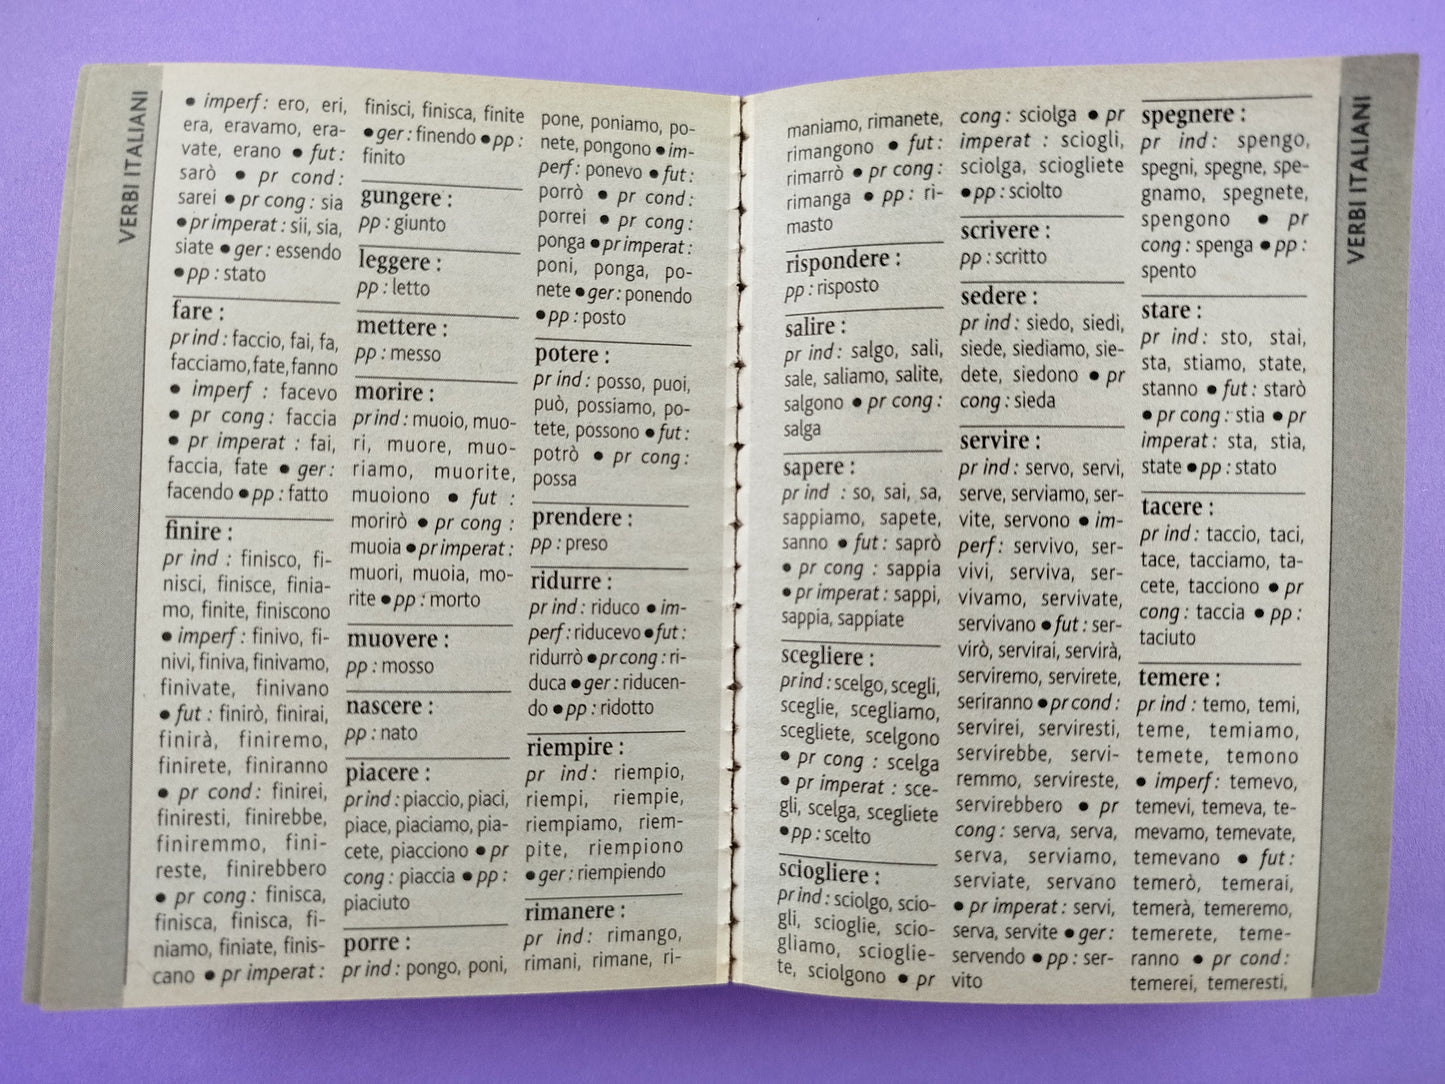 VERBI ITALIANI
● imperf : ero, eri,
era, eravamo, era-
vate, erano ● fut :
sarò ● pr cond :
sarei ● pr cong : sia
● pr imperat : sii, sia,
siate ● ger : essendo
● pp : stato
fare :
pr ind : faccio, fai, fa,
facciamo, fate, fanno
● imperf : facevo
● pr cong : faccia
● pr imperat : fai,
faccia, fate ● ger :
facendo ● pp : fatto
finire :
pr ind : finisco, fi-
nisci, finisce, finia-
mo, finite, finiscono
● imperf : finivo, fi-
nivi, finiva, finivamo,
finivate, finivano
● fut : finirò, finirai,
finirà, finiremo,
finirete, finiranno
● pr cond : finirei,
finiresti, finirebbe,
finiremmo, fini-
reste, finirebbero
● pr cong : finisca,
finisca, finisca, fi-
niamo, finiate, finis-
cano ● pr imperat :
finisci, finisca, finite
● ger : finendo ● pp :
finito
gungere :
pp : giunto
leggere :
pp : letto
mettere :
pp : messo
morire :
pr ind : muoio, muo-
ri, muore, muo-
riamo, muorite,
muoiono ● fut :
morirò ● pr cong :
muoia ● pr imperat :
muori, muoia, mo-
rite ● pp : morto
muovere :
pp : mosso
nascere :
pp : nato
piacere :
pr ind : piaccio, piaci,
piace, piaciamo, pia-
cete, piacciono ● pr
cong : piaccia ● pp :
piaciuto
porre :
pr ind : pongo, poni,
pone, poniamo, po-
nete, pongono ● im-
perf : ponevo ● fut :
porrò ● pr cond :
porrei ● pr cong :
ponga ● pr imperat :
poni, ponga, po-
nete ● ger : ponendo
● pp : posto
potere :
pr ind : posso, puoi,
può, possiamo, po-
tete, possono ● fut :
potrò ● pr cong :
possa
prendere :
pp : preso
ridurre :
pr ind : riduco ● im-
perf : riducevo ● fut :
ridurrò ● pr cong : ri-
duca ● ger : riducen-
do ● pp : ridotto
riempire :
pr ind : riempio,
riempi, riempie,
riempiamo, riem-
pite, riempiono
● ger : riempiendo
rimanere :
pr ind : rimango,
rimani, rimane, ri-
maniamo, rimanete,
rimangono ● fut :
rimarrò ● pr cong :
rimanga ● pp : ri-
masto
rispondere :
pp : risposto
salire :
pr ind : salgo, sali,
sale, saliamo, salite,
salgono ● pr cong :
salga
sapere :
pr ind : so, sai, sa,
sappiamo, sapete,
sanno ● fut : saprò
● pr cong : sappia
● pr imperat : sappi,
sappia, sappiate
scegliere :
pr ind : scelgo, scegli,
sceglie, scegliamo,
scegliete, scelgono
● pr cong : scelga
● pr imperat : sce-
gli, scelga, scegliete
● pp : scelto
sciogliere :
pr ind : sciolgo, scio-
gli, scioglie, scio-
gliamo, scioglie-
te, sciolgono ● pr
cong : sciolga ● pr
imperat : sciogli,
sciolga, sciogliete
● pp : sciolto
scrivere :
pp : scritto
sedere :
pr ind : siedo, siedi,
siede, siediamo, sie-
dete, siedono ● pr
cong : sieda
servire :
pr ind : servo, servi,
serve, serviamo, ser-
vite, servono ● im-
perf : servivo, ser-
vivi, serviva, ser-
vivamo, servivate,
servivano ● fut : ser-
virò, servirai, servirà,
serviremo, servirete,
seriranno ● pr cond :
servirei, serviresti,
servirebbe, servi-
remmo, servireste,
servirebbero ● pr
cong : serva, serva,
serva, serviamo,
serviate, servano
● pr imperat : servi,
serva, servite ● ger :
servendo ● pp : ser-
vito
spegnere :
pr ind : spengo,
spegni, spegne, spe-
gnamo, spegnete,
spengono ● pr
cong : spenga ● pp :
spento
stare :
pr ind : sto, stai,
sta, stiamo, state,
stanno ● fut : starò
● pr cong : stia ● pr
imperat : sta, stia,
state ● pp : stato
tacere :
pr ind : taccio, taci,
tace, tacciamo, ta-
cete, tacciono ● pr
cong : taccia ● pp :
taciuto
temere :
pr ind : temo, temi,
teme, temiamo,
temete, temono
● imperf : temevo,
temevi, temeva, te-
mevamo, temevate,
temevano ● fut :
temerò, temerai,
temerà, temeremo,
temerete, teme-
ranno ● pr cond :
temerei, temeresti,
VERBI ITALIANI